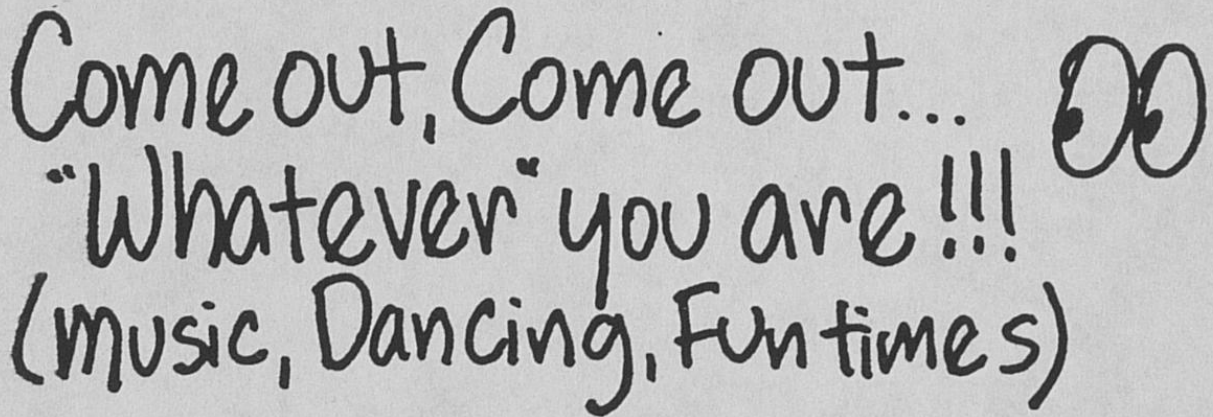 Come out, Come out...
"Whatever" you are!!!
(music, Dancing, Fun times)